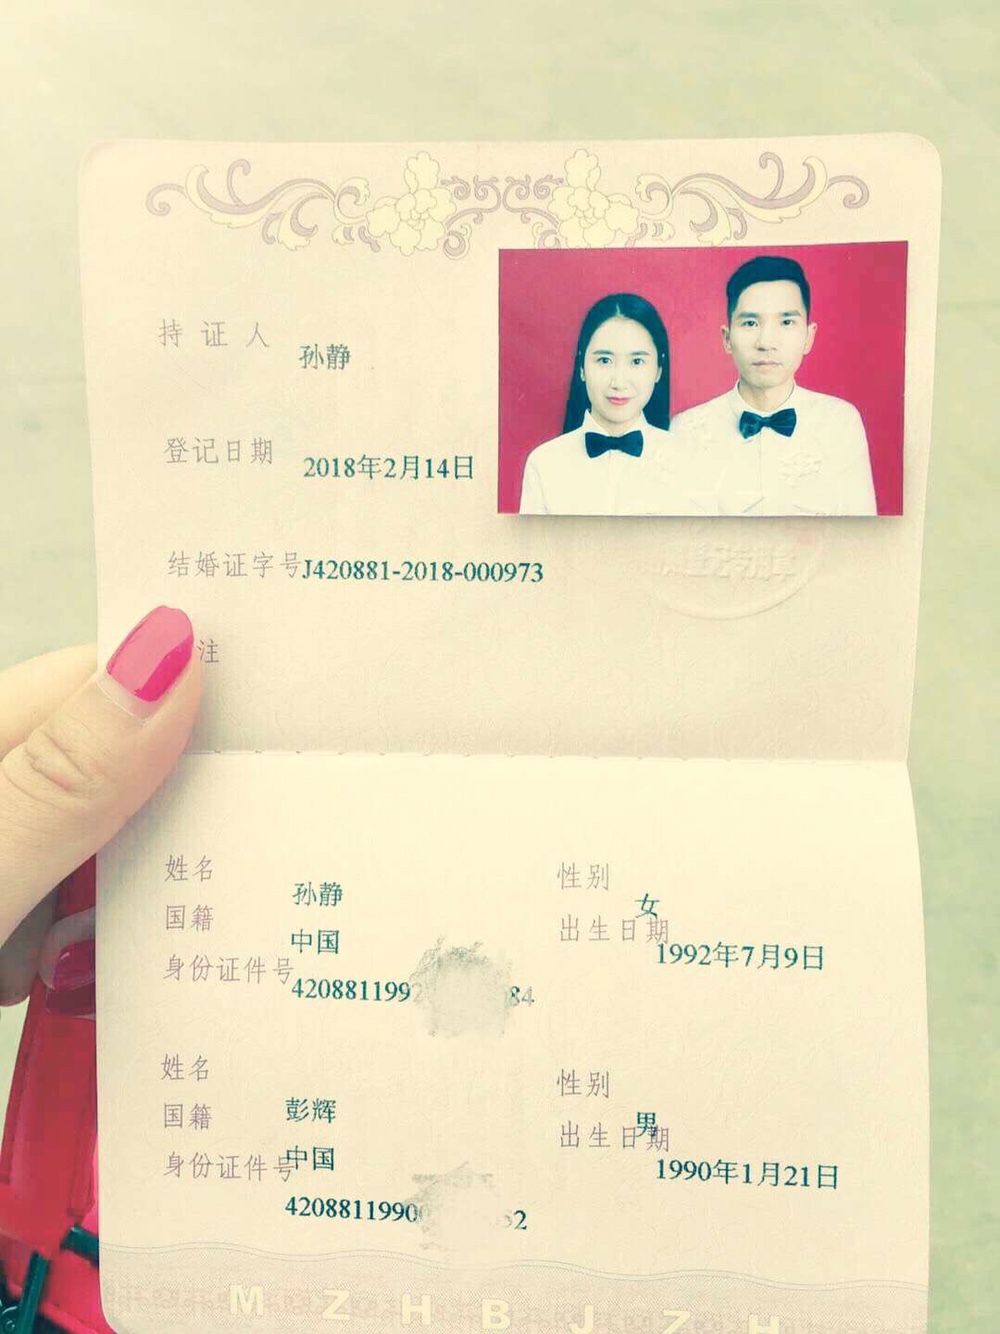 持证人 孙静
登记日期 2018年2月14日
结婚证字号 J420881-2018-000973
注
姓名 孙静 性别 女
国籍 中国 出生日期 1992年7月9日
身份证件号 420881199 84
姓名 彭辉 性别 男
国籍 中国 出生日期 1990年1月21日
身份证件号 4208811990 52
M Z H B J Z H